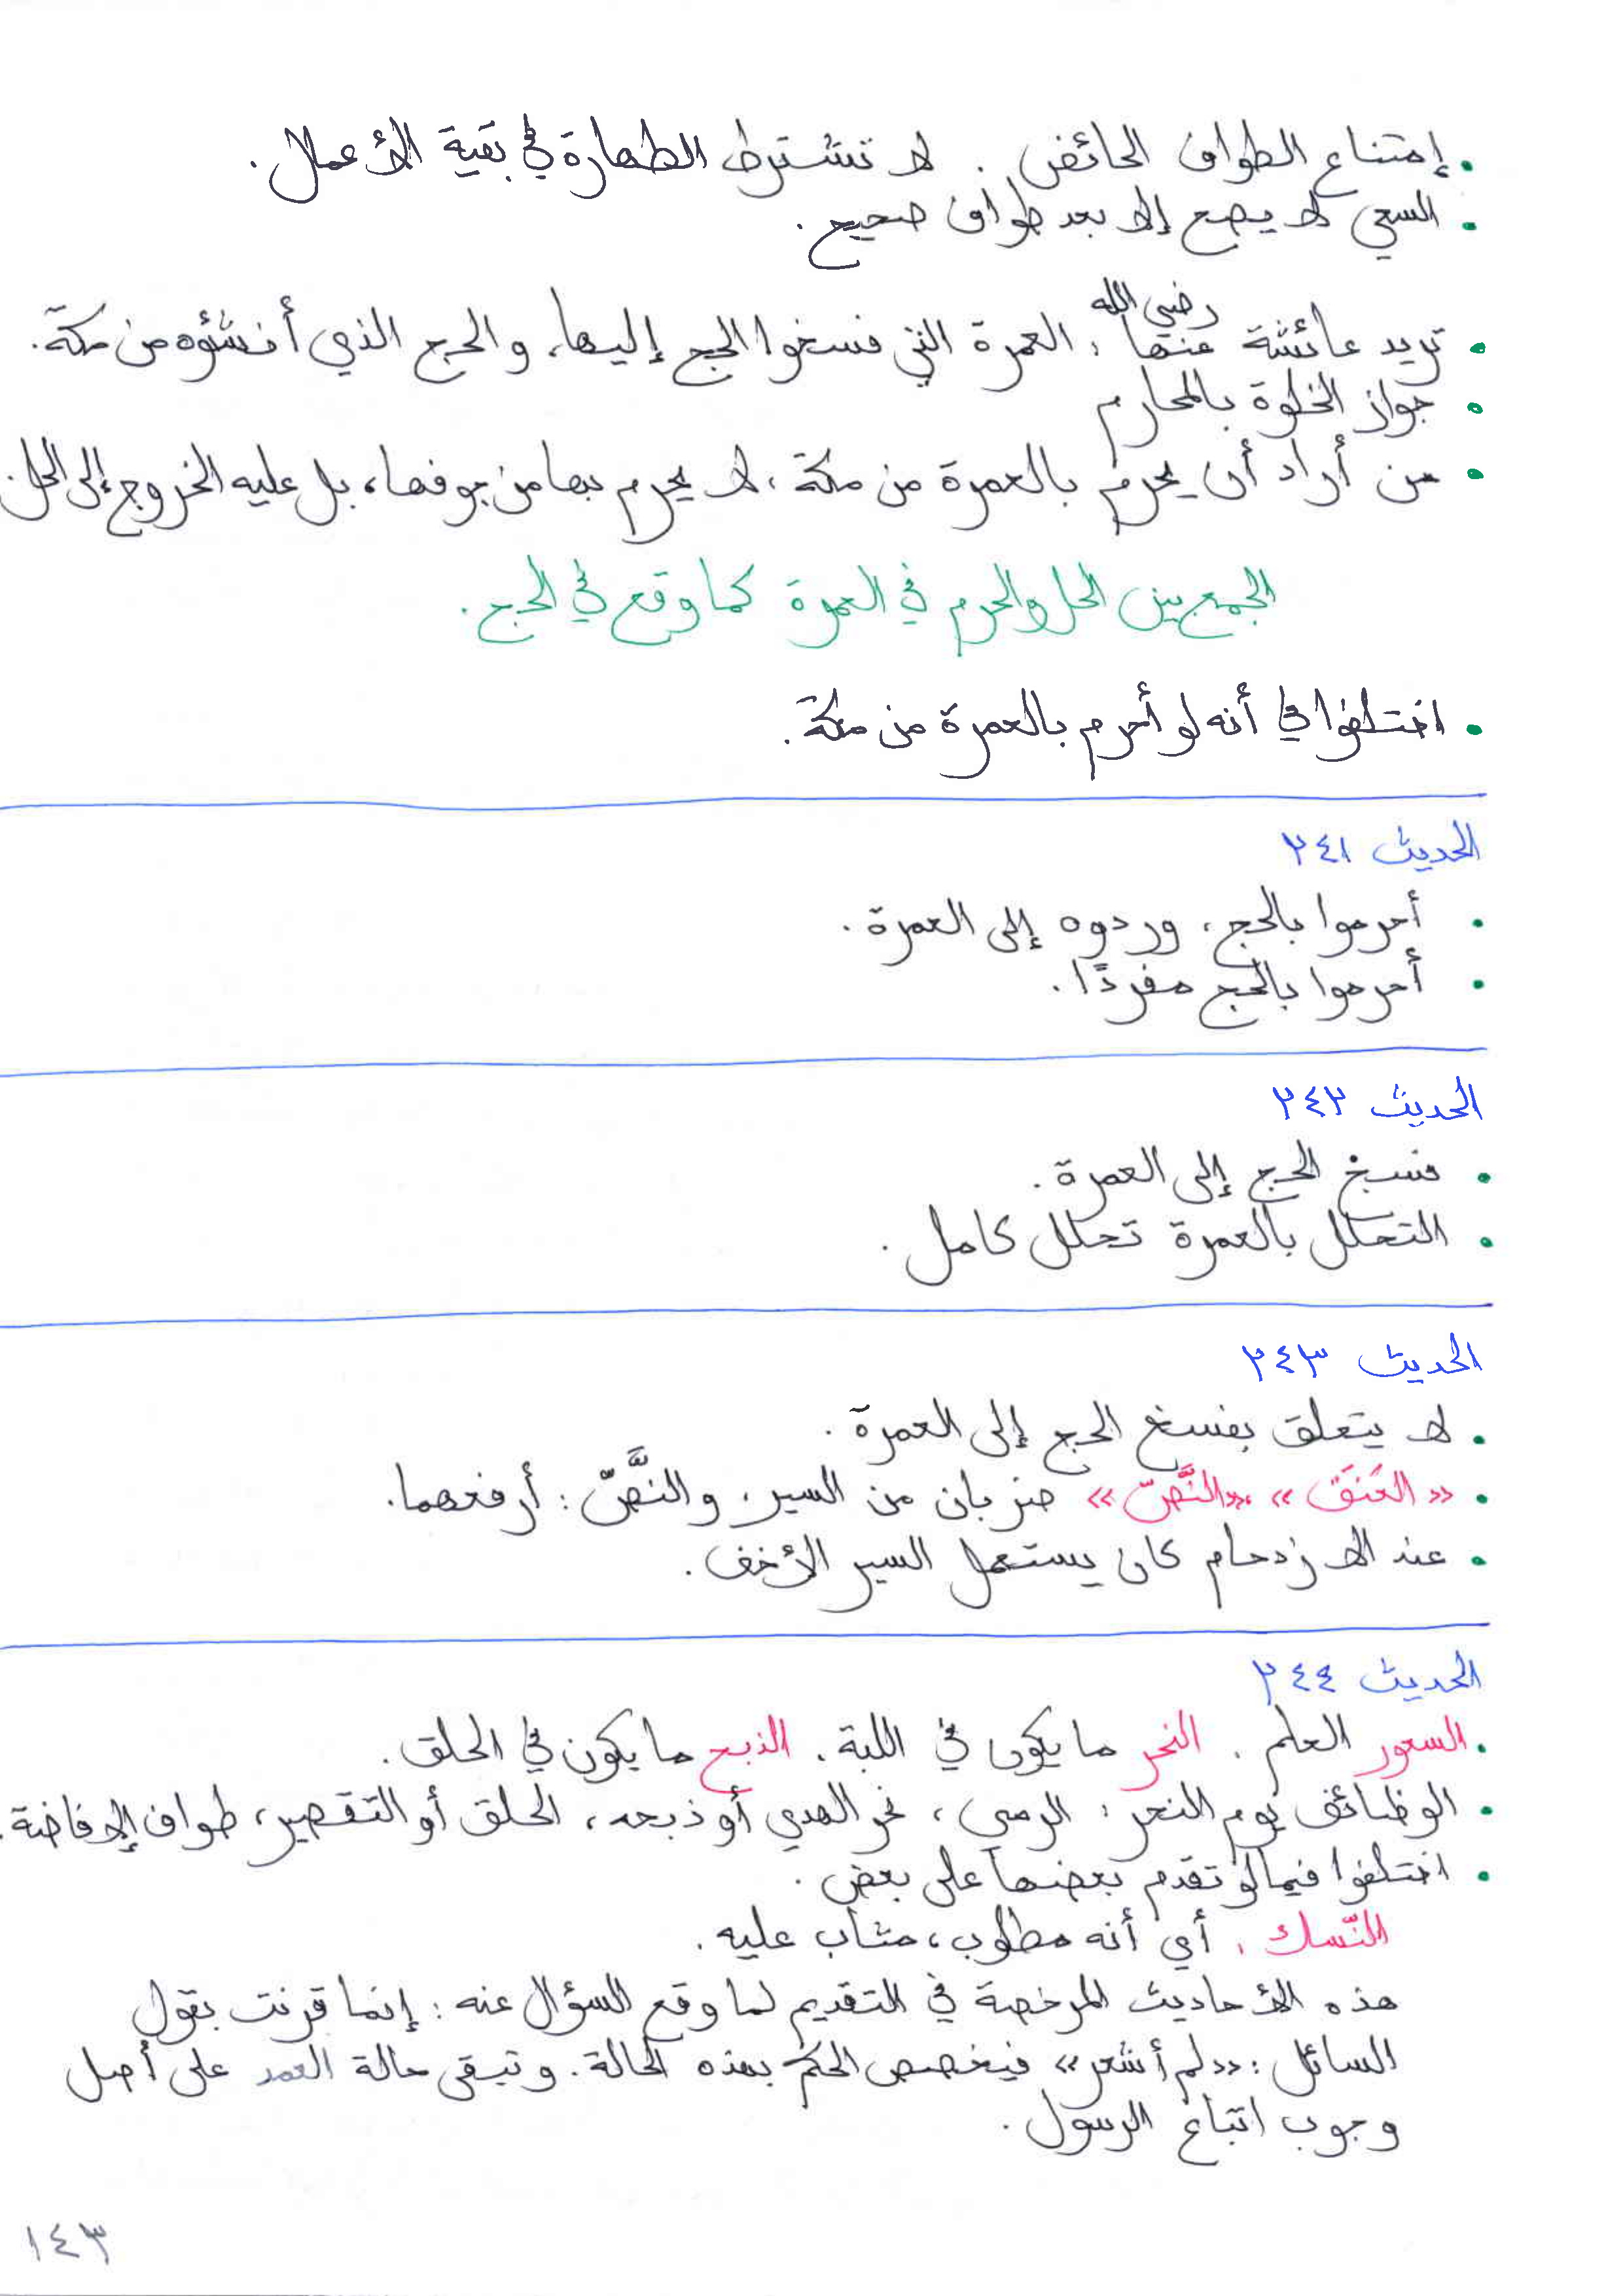 • إمتناع الطواف الحائض . لا تشترط الطهارة في بقية الأعمال.
• السعي لا يصح إلا بعد طواف صحيح.
• تريد عائشة رضي الله عنها: العمرة التي فسخوا الحج إليها، والحج الذي أنشؤه من مكة.
• جواز الخلوة بالمحارم
• من أراد أن يحرم بالعمرة من مكة، لا يحرم بها من جوفها، بل عليه الخروج إلى الحل.
الجمع بين الحل والحرم في العمرة كما وقع في الحج.
• اختلفوا في أنه لو أحرم بالعمرة من مكة.
الحديث ٢٤١
• أحرموا بالحج، وردوه إلى العمرة.
• أحرموا بالحج مفردًا.
الحديث ٢٤٢
• فسخ الحج إلى العمرة.
• التحلل بالعمرة تحلل كامل.
الحديث ٢٤٣
• لا يتعلق بفسخ الحج إلى العمرة.
• «العَنَقَ» «النَّصّ» ضربان من السير، والنَّصّ: أرفعهما.
• عند الازدحام كان يستعمل السير الأخف.
الحديث ٢٤٤
• السعور العلم. النحر ما يكون في اللبة. الذبح ما يكون في الحلق.
• الوظائف يوم النحر: الرمي، نحر الهدي أو ذبحه، الحلق أو التقصير، طواف الإفاضة.
• اختلفوا فيما لو تقدم بعضها على بعض.
النّسك: أي أنه مطلوب، مثاب عليه.
هذه الأحاديث المرخصة في التقديم لما وقع السؤال عنه: إنما قرنت بقول
السائل: «لم أشعر» فيخصص الحكم بهذه الحالة. وتبقى حالة العمد على أصل
وجوب اتباع الرسول.
١٤٣